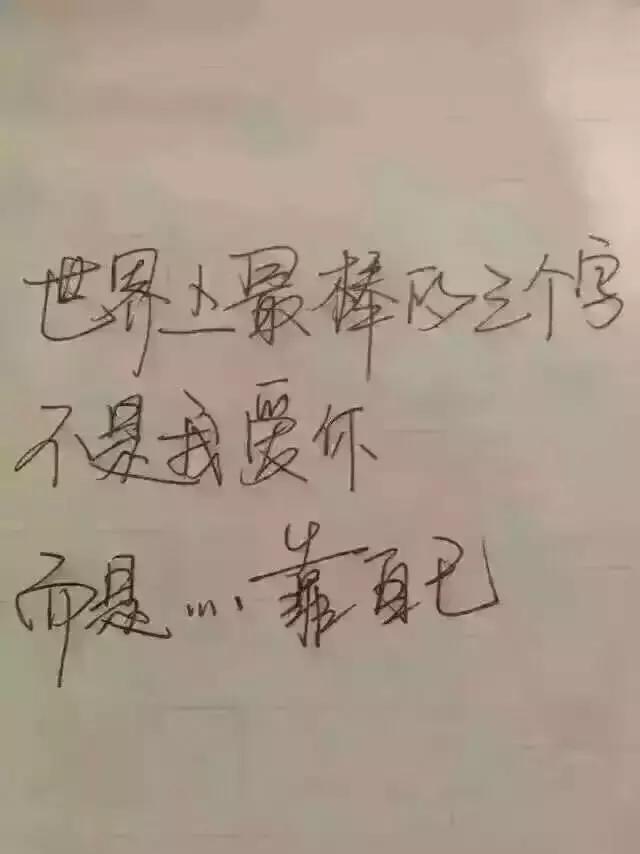 世界上最棒的三个字
不是我爱你
而是....靠自己